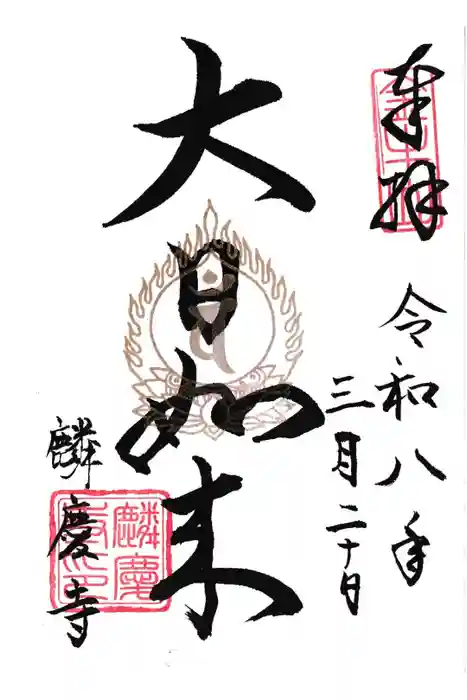 奉拝
令和八年
三月二十日
大日如来
麟慶寺